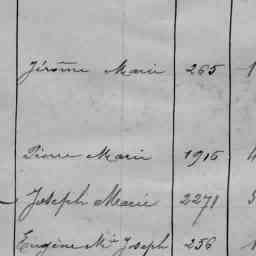 Jérôme Marie 265
Pierre Marie 1916
Joseph Marie 2271
Eugène Mie Joseph 256